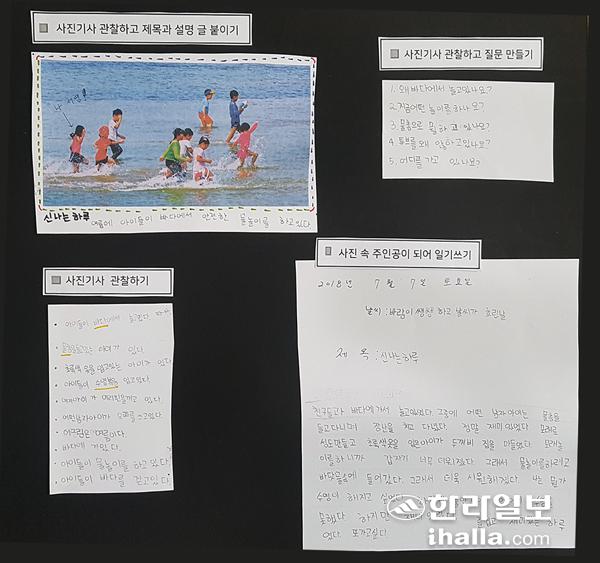 사진기사 관찰하고 제목과 설명 글 붙이기
신나는하루
여름에 아이들이 바다에서 안전한 물놀이를 하고있다
사진기사 관찰하고 질문 만들기
1. 왜 바다에서 놀고있나요?
2. 지금어떤 놀이를하나요?
3. 물총으로 뭘하고 있나요?
4. 튜브를 왜 안하고있나요?
5. 어디를 가고 있나요?
사진기사 관찰하기
아이들이 바다에서 놀고있다
아이가 있다
초록색 옷을 입고있는 아이가 있다
아이들이 수영복을 입고있다
여자아이가 머리띤를끼고 있다
어떤남자아이가 모자를쓰고있다
여름이다
바다에 가있다
아이들이 물놀이를 하고 있다
아이들이 바다를 걷고있다
사진 속 주인공이 되어 일기쓰기
2018년 7월 7일 토요일
날씨:바람이 쌩쌩 하고 날씨가 흐린날
제 목:신나는하루
친구들과 바다에가서 놀고있었다 그중에 어떤 남자아이는 물총을
들고다니며 장난을 치고 다녔다 정말 재미있었다 모래로
성도만들고 초록색옷을 입은아이가 두꺼비 집을 만들었다 모래놀
이를하니까 갑자기 너무 더워졌다 그래서 물놀이를하려고
바닷물속에 들어갔다 그래서 더욱 시원해졌다 나는 뭔가
수영이 해지고
못했다 하지만 재미있는 하루
였다 또가고싶다
한라일보
ihalla.com